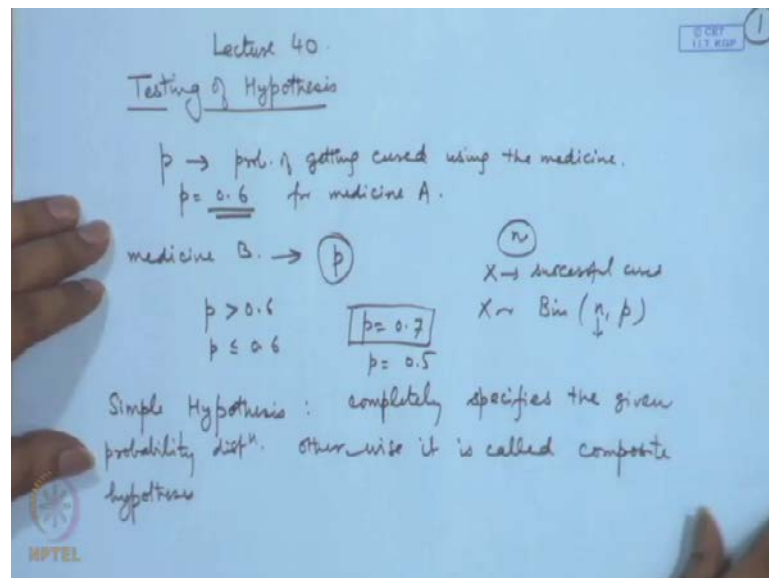 Lecture 40.
© CET
I.I.T. KGP
1
Testing of Hypothesis
p → prob. of getting cured using the medicine.
p = 0.6 for medicine A.
medicine B. → p
n
X → successful cures
p > 0.6
p = 0.7
X ~ Bin (n, p)
p ≤ 0.6
p = 0.5
Simple Hypothesis : completely specifies the given
probability distⁿ. otherwise it is called composite
hypothesis
NPTEL